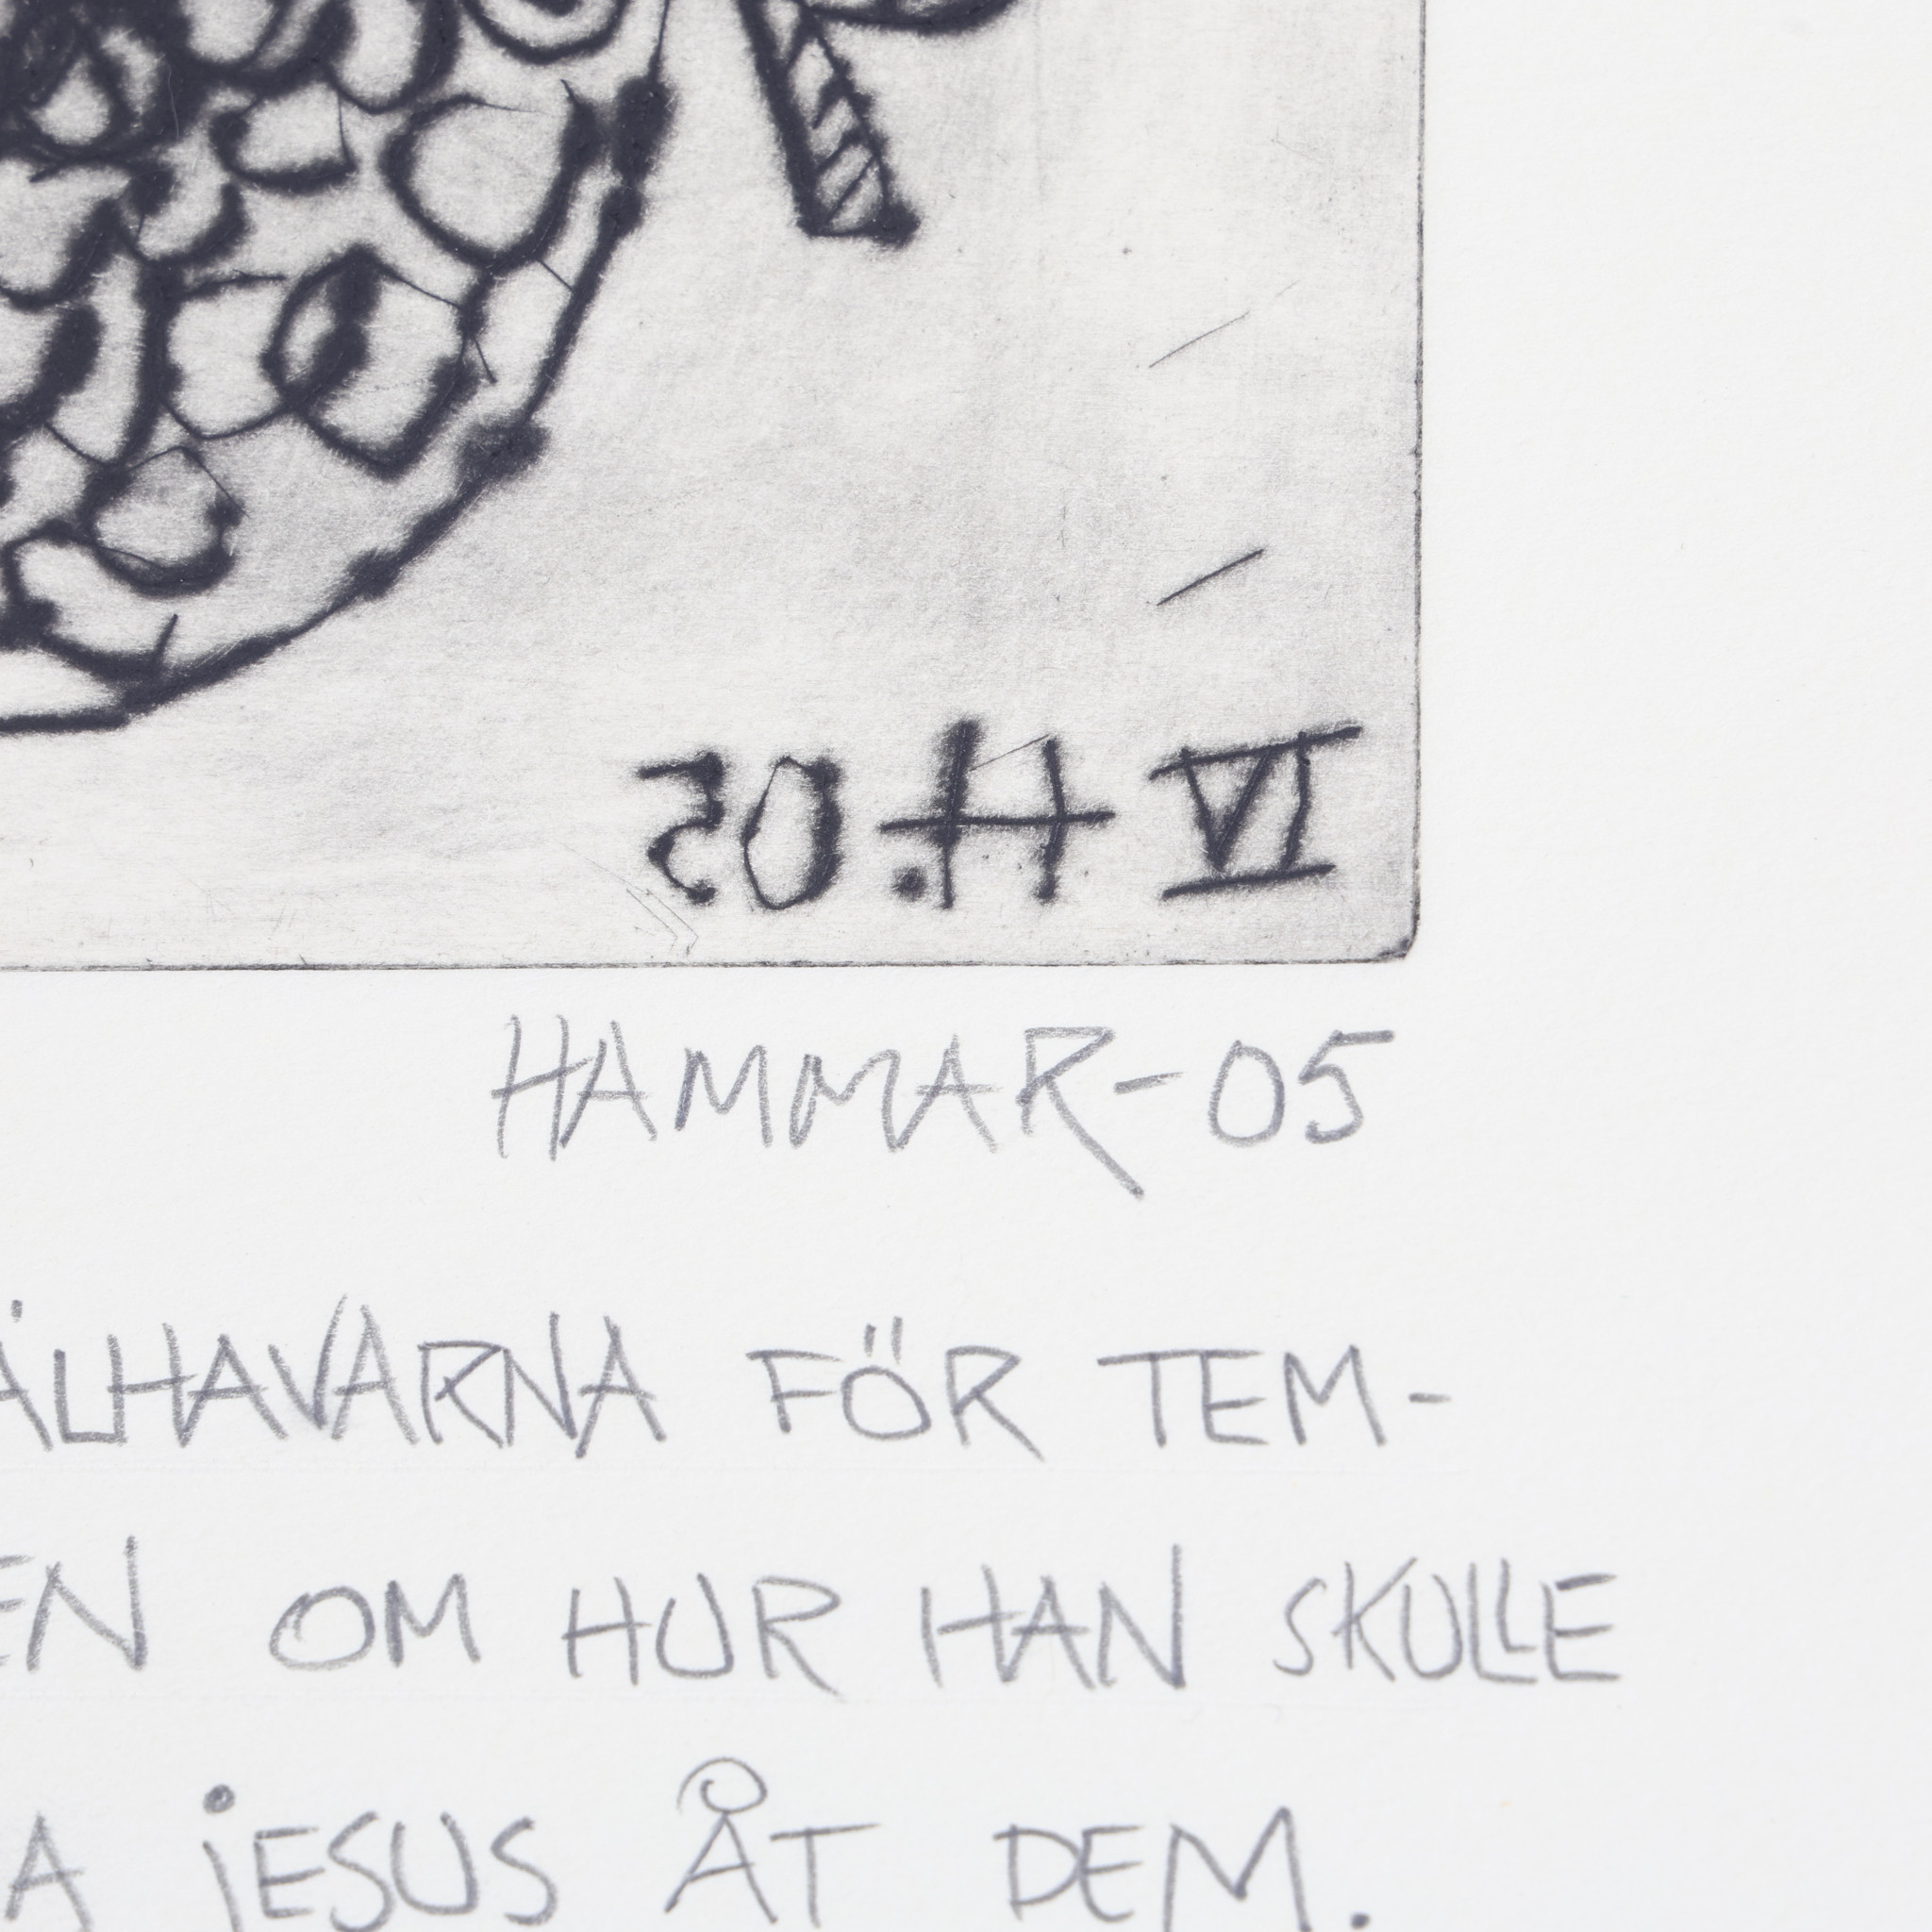 IV H.05
HAMMAR-05
ÄLHAVARNA FÖR TEM-
EN OM HUR HAN SKULLE
A jESUS ÅT DEM.